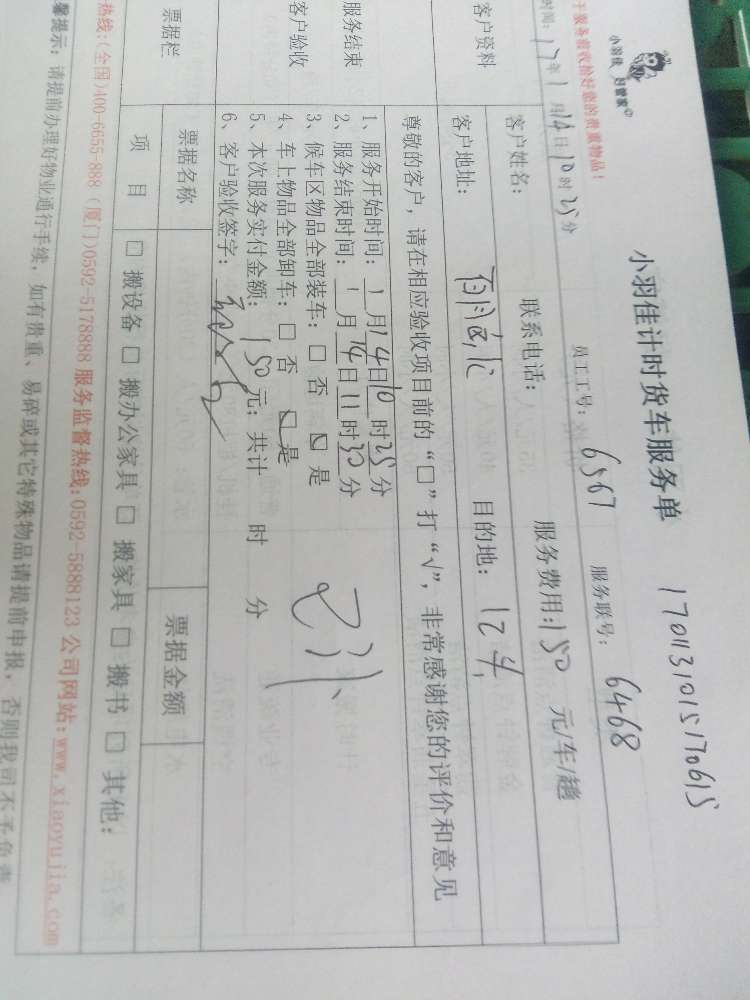 小羽佳 好管家
小羽佳计时货车服务单
1701131015170615
于服务前收拾好您的贵重物品!
时间: 17年1月14日10时25分 员工工号: 6567 服务联号: 6468
客户资料
客户姓名: 联系电话: 服务费用:150 元/车/趟
客户地址: 目的地:
服务结束
客户验收
尊敬的客户,请在相应验收项目前的“□”打“√”,非常感谢您的评价和意见
1、服务开始时间: 1月14日10时25分
2、服务结束时间: 1月14日11时30分
3、候车区物品全部装车: □ 否 ☑ 是
4、车上物品全部卸车: □ 否 ☑ 是
5、本次服务实付金额: 150元; 共计 时 分
6、客户验收签字:
票据栏
票据名称 票据金额
项 目 □ 搬设备 □ 搬办公家具 □ 搬家具 □ 搬书 □ 其他:
热线:(全国)400-6655-888 (厦门)0592-5178888 服务监督热线:0592-5888123 公司网站:www.xiaoyujia.com
馨提示: 请提前办理好物业通行手续, 如有贵重、易碎或其它特殊物品请提前申报, 否则我司不予负责